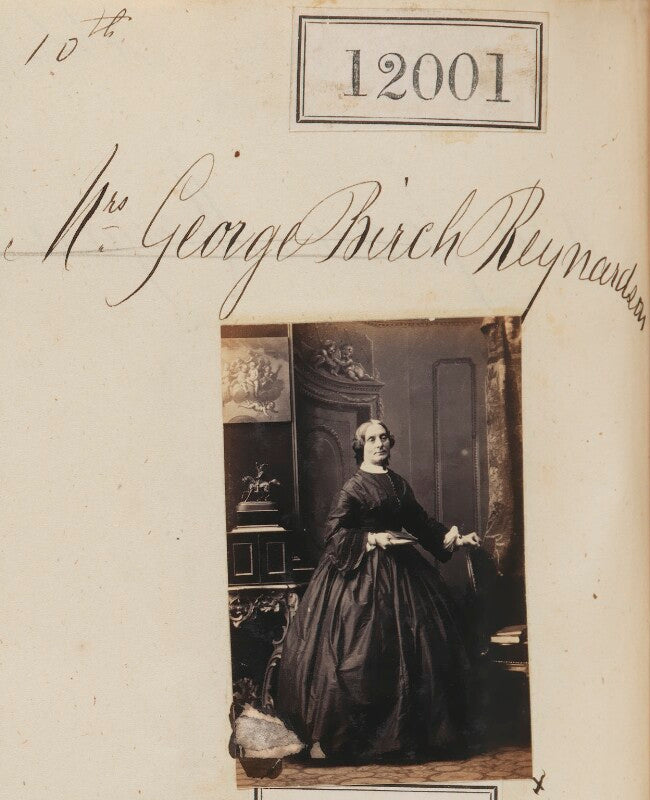 10th
12001
Mrs George Birch Reynardson
x